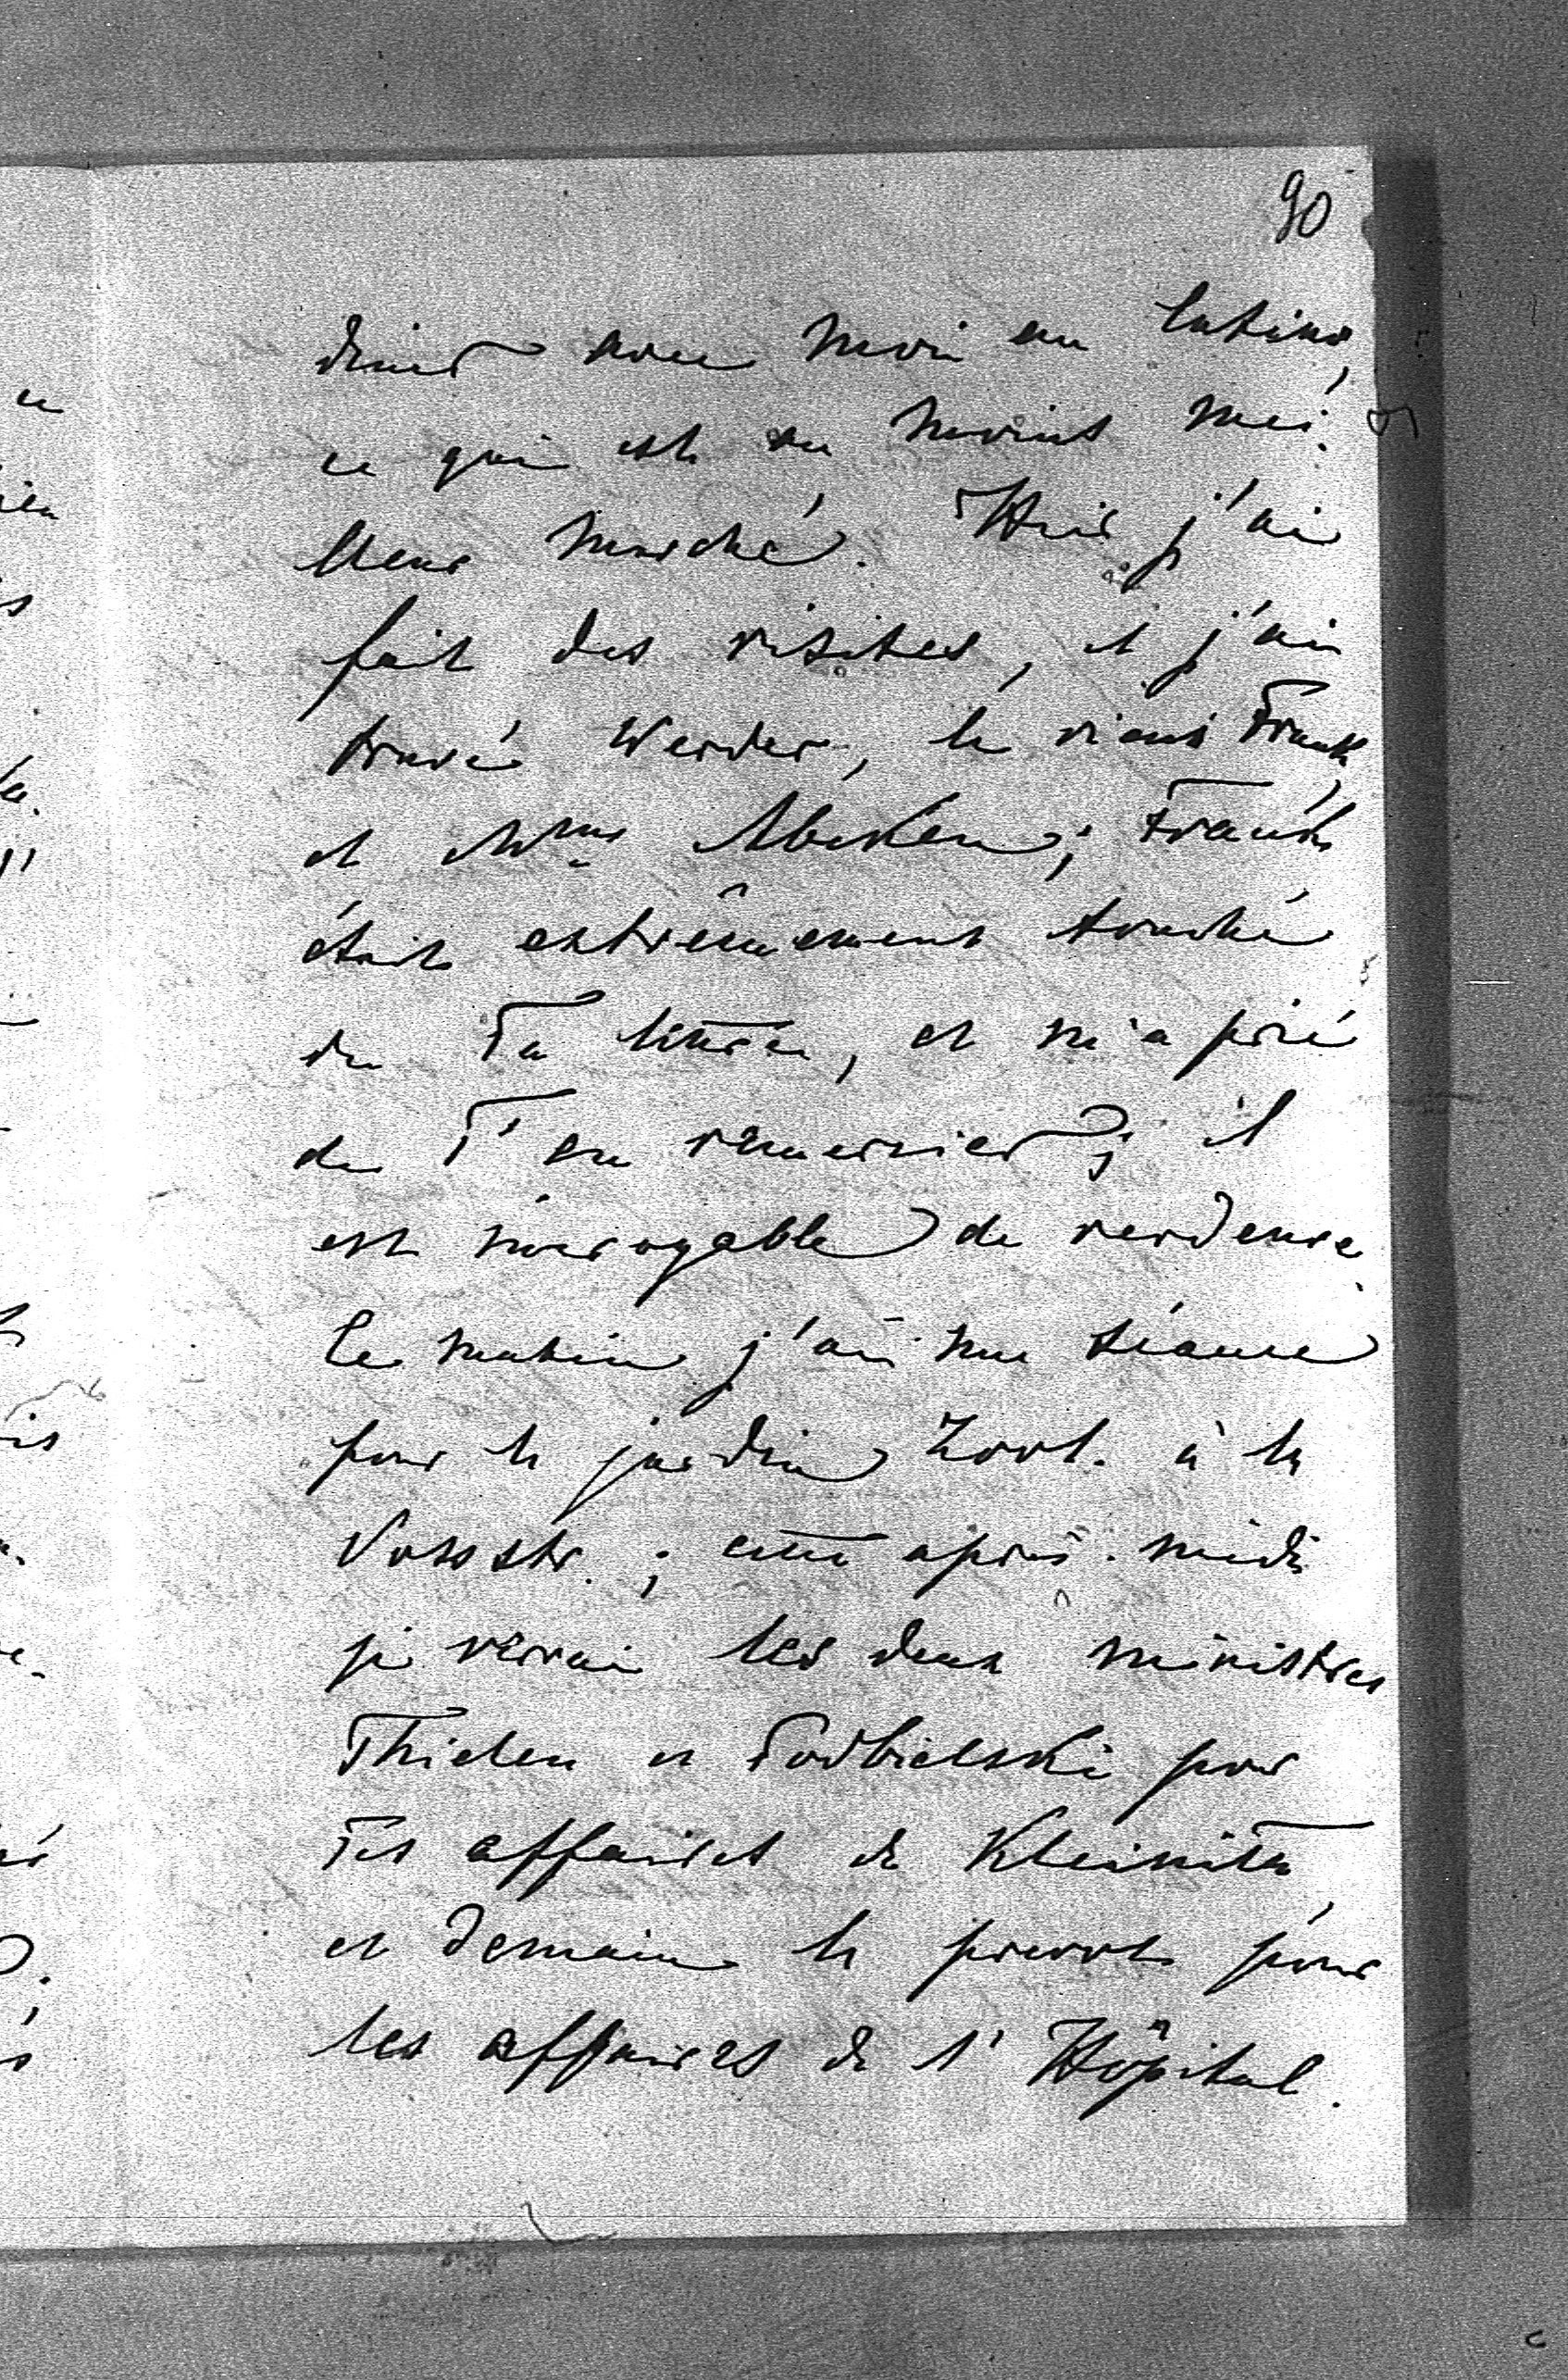 90
diner avec moi au Casino,
ce qui est au moins mei-
lleur marché. Hier j'ai
fait des visites, et j'ai
trouvé Werder, le vieux Frank,
et Mme Abeken; Frank
était extrêmement touché
de Ta lettre, et m'a prié
de T'en remercier; il
est incroyable de verdeur.
Ce matin j'ai une séance
pour le jardin Zool. à la
Vossstr.; cette après-midi
je verrai les deux ministres
Thielen et Podbielski pour
Tes affaires de Kleinitz,
et demain le prevot pour
les affaires de l'Hôpital.